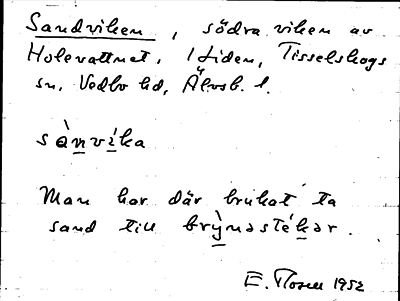 Sandviken, södra viken av
Holevattnet, Liden, Tisselskogs
sn, Vedbo hd, Älvsb. l.
sànvíka
Man har där brukat ta
sand till brỳnastékar.
E. 1952